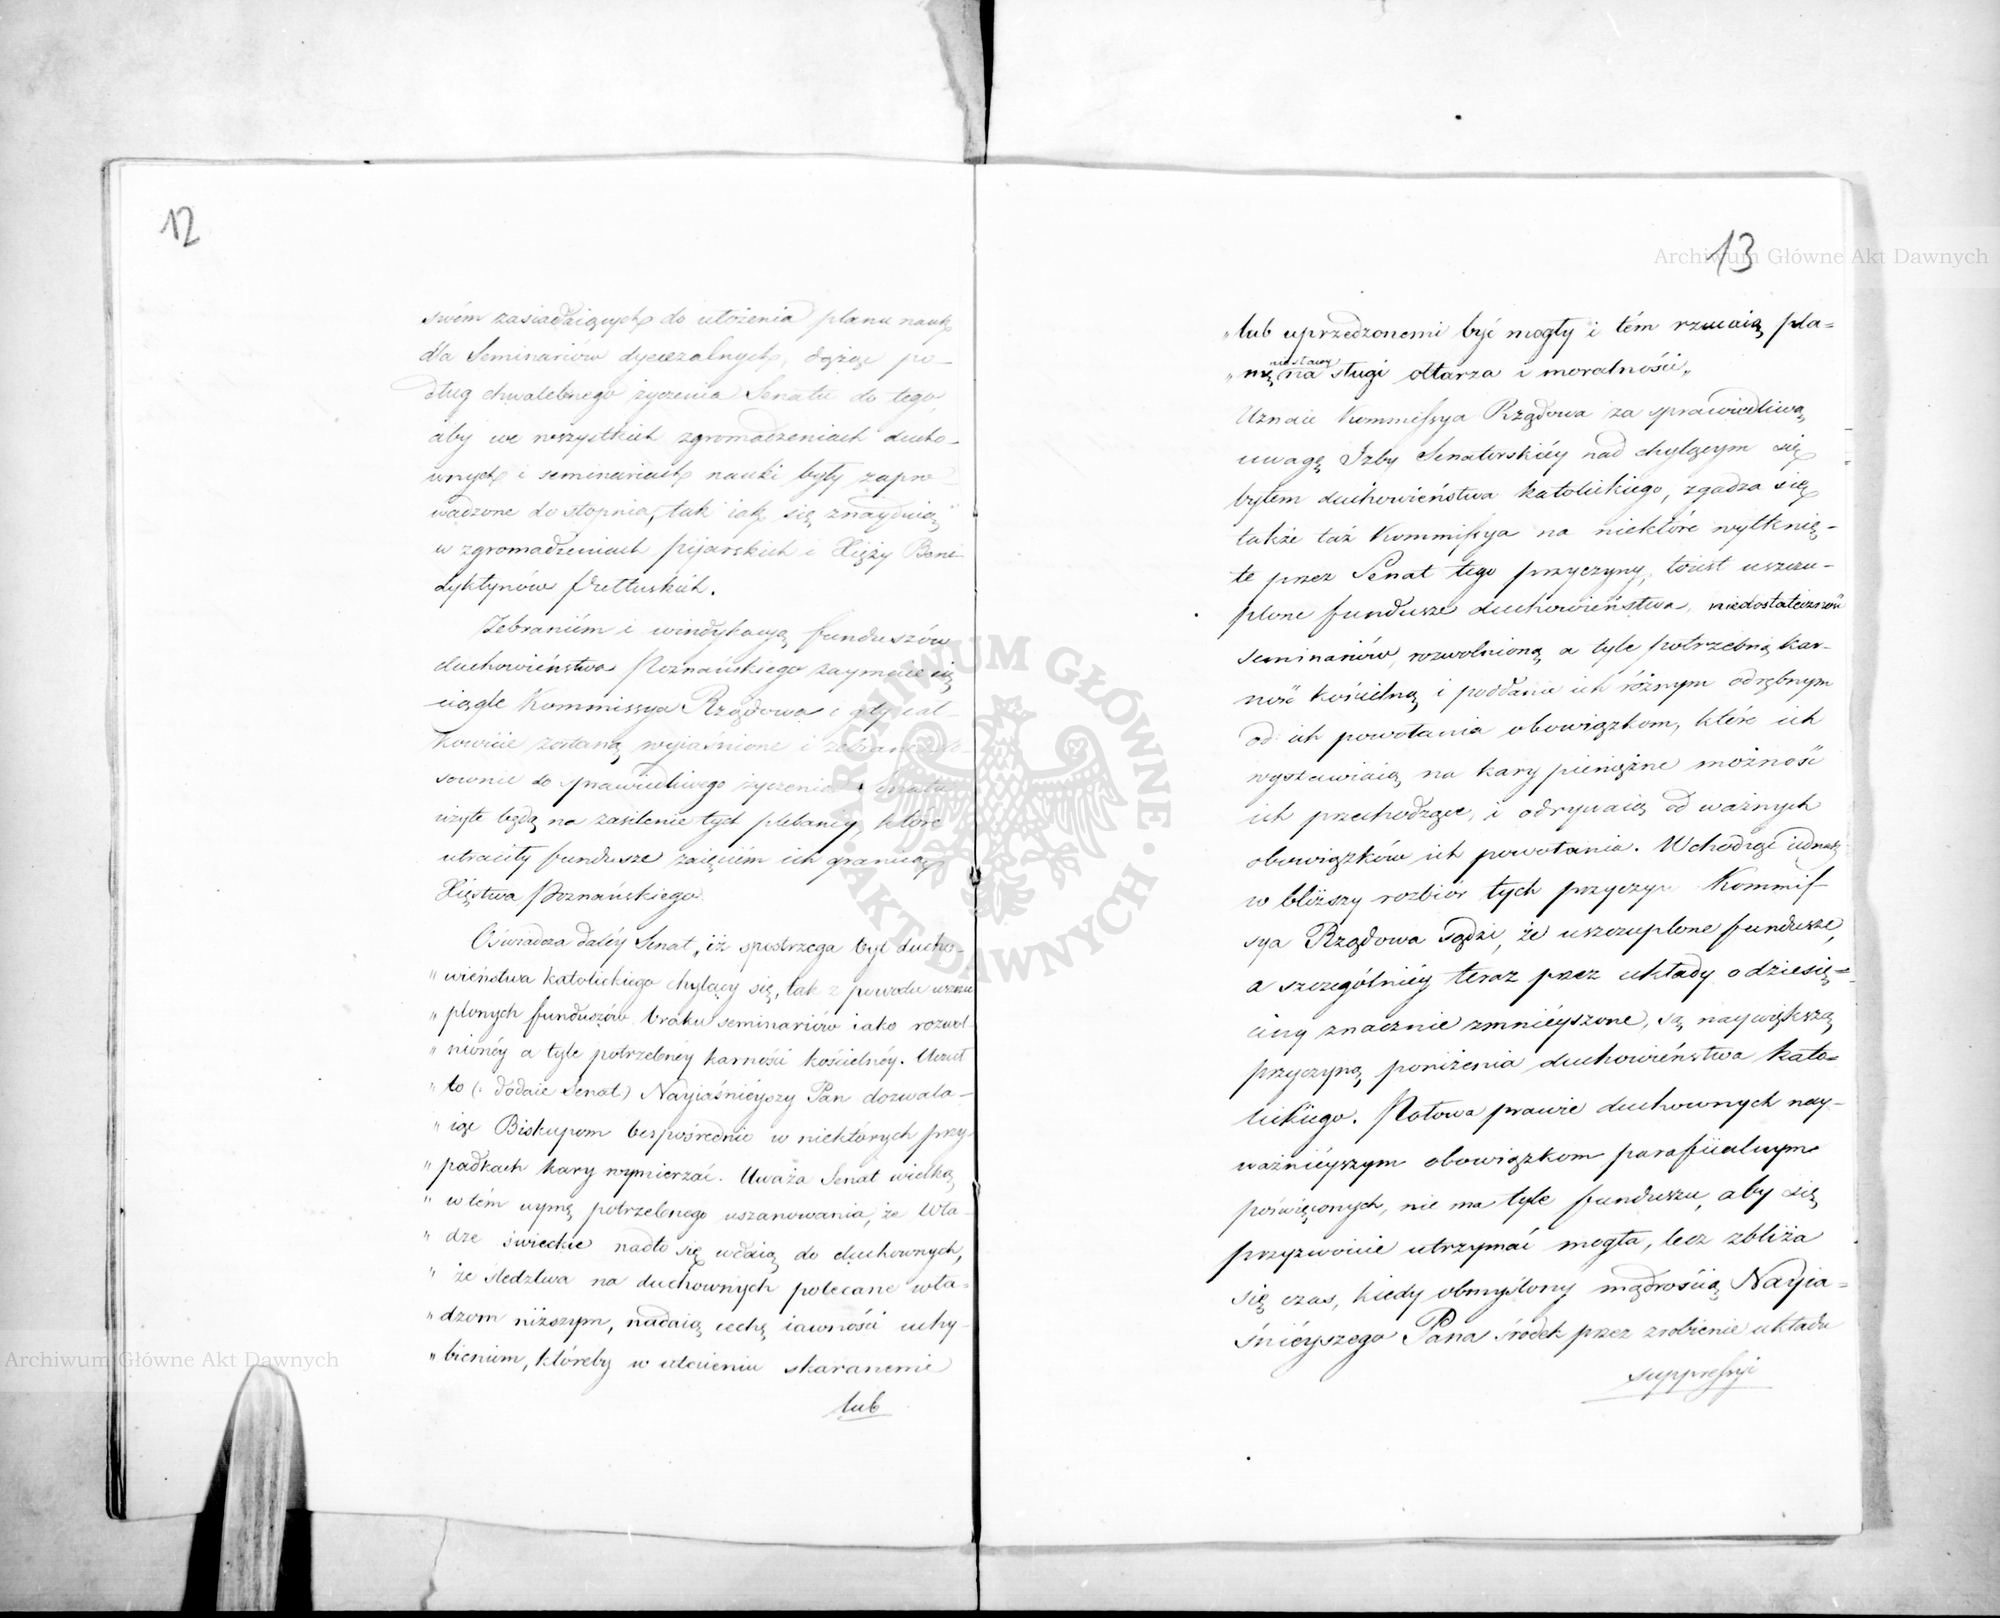 12
swém zasiadaiących do ułożenia planu nauk
dla Seminariów dyecezalnych, dążąc po-
dług chwalebnego życzenia Senatu do tego,
aby we wszystkich zgromadzeniach ducho-
wnych i seminariach nauki były zapro-
wadzone do stopnia, tak iak się znayduią
w zgromadzeniach pijarskich i Xięży Bene-
dyktynów Pułtuskich.
Zebraniém i windykacyą funduszów
duchowieństwa Poznańskiego zaymuie się
ciągle Kommissya Rządowa i gdy cał-
kowicie zostaną wyiaśnione i zebrane sto-
sownie do sprawiedliwego życzenia Senatu
użyte będą na zasilenie tych plebaniy, które
utraciły fundusze zaięciém ich granicą
Xięstwa Poznańskiego.
Oświadcza daléy Senat, „iż spostrzega byt ducho-
„ wieństwa katolickiego chylący się, tak z powodu uszczu
„ plonych funduszów braku seminariów iako rozwol-
„ nionéy a tyle potrzebnéy karności kościelnéy. Uczuł
„ to (: dodaie Senat) Nayiaśnieyszy Pan dozwala-
„ iąc Biskupom bezpośrednio w niektórych przy-
„ padkach kary wymierzać. Uważa Senat wielką
„ w tém uymę potrzebnego uszanowania, że Wła-
„ dze świeckie nadto się wdaią do duchownych,
„ że śledztwa na duchownych polecane wła-
„ dzom niższym, nadaią cechę iawności uchy-
„ bieniom, któreby w ukryciu skaranemi
lub
13
„ lub uprzedzonemi być mogły i tém rzucaią pla-
niesławy
„ mę na sługi ołtarza i moralności„
Uznaie Kommissya Rządowa za sprawiedliwą
uwagę Izby Senatorskiéy nad chylącym się
bytem duchowieństwa katolickiego, zgadza się
także taż Kommissya na niektóre wytknię-
te przez Senat tego przyczyny, toiest uszczu-
plone fundusze duchowieństwa, niedostateczność
seminariów, rozwolnioną a tyle potrzebną kar-
ność kościelną i poddanie ich różnym odrębnym
od ich powołania obowiązkom, które ich
wystawiaią na kary pieniężne możność
ich przechodzące, i odrywaią od ważnych
obowiązków ich powołania. Wchodząc iednak
w bliższy rozbiór tych przyczyn Kommis-
sya Rządowa sądzi, że uszczuplone fundusze,
a szczególniéy teraz przez układy o dziesię-
ciny znacznie zmnieyszone, są naywiększą
przyczyną poniżenia duchowieństwa kato-
lickiego. Połowa prawie duchownych nay-
ważnieyszym obowiązkom parafiialnym
poświęconych, nie ma tyle funduszu, aby się
przyzwoicie utrzymać mogła, lecz zbliża
się czas, kiedy obmyślony mądrością Nayia-
śnieyszego Pana środek przez zrobienie układu
suppressyi
Archiwum Główne Akt Dawnych
Archiwum Główne Akt Dawnych
ARCHIWUM GŁÓWNE · AKT DAWNYCH ·